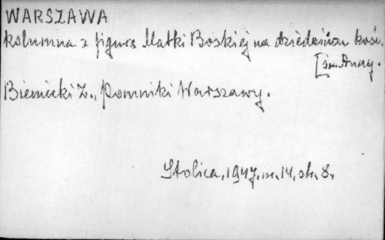 WARSZAWA
kolumna z figurą Matki Boskiej na dziedzińcu kość.
[św. Anny.
Bieniecki Z., Pomniki Warszawy.
Stolica, 1947, nr. 14, str. 8.